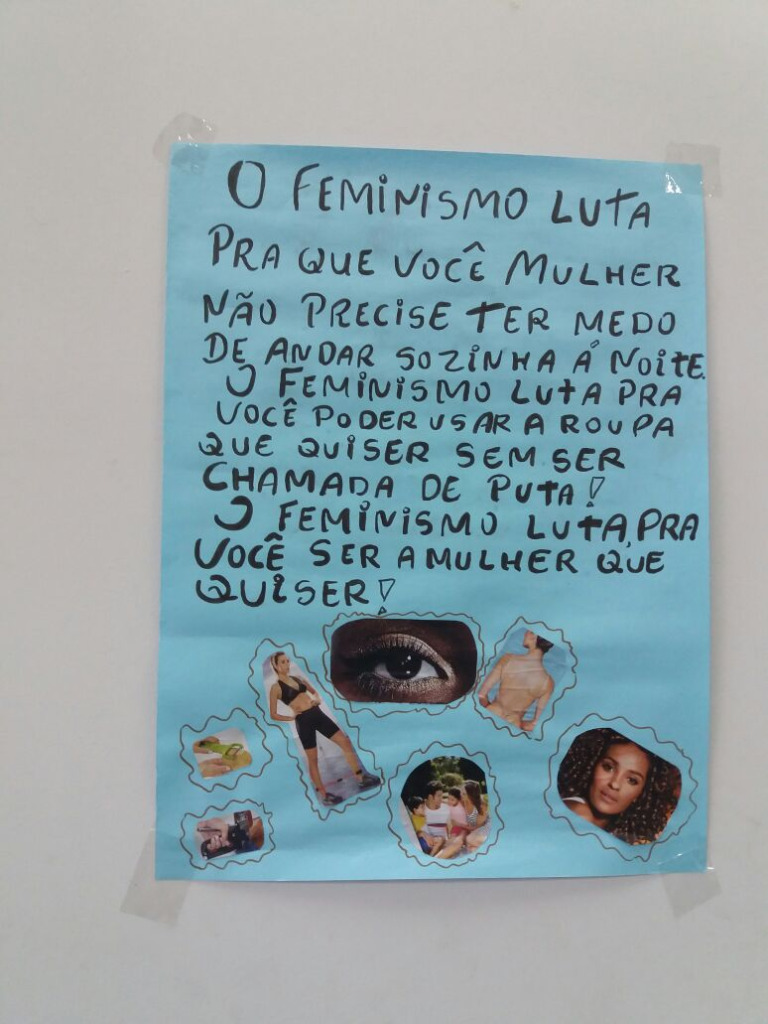 O FEMINISMO LUTA
PRA QUE VOCÊ MULHER
NÃO PRECISE TER MEDO
DE ANDAR SOZINHA Á NOITE.
O FEMINISMO LUTA PRA
VOCÊ PODER USAR A ROUPA
QUE QUISER SEM SER
CHAMADA DE PUTA!
O FEMINISMO LUTA, PRA
VOCÊ SER A MULHER QUE
QUISER!